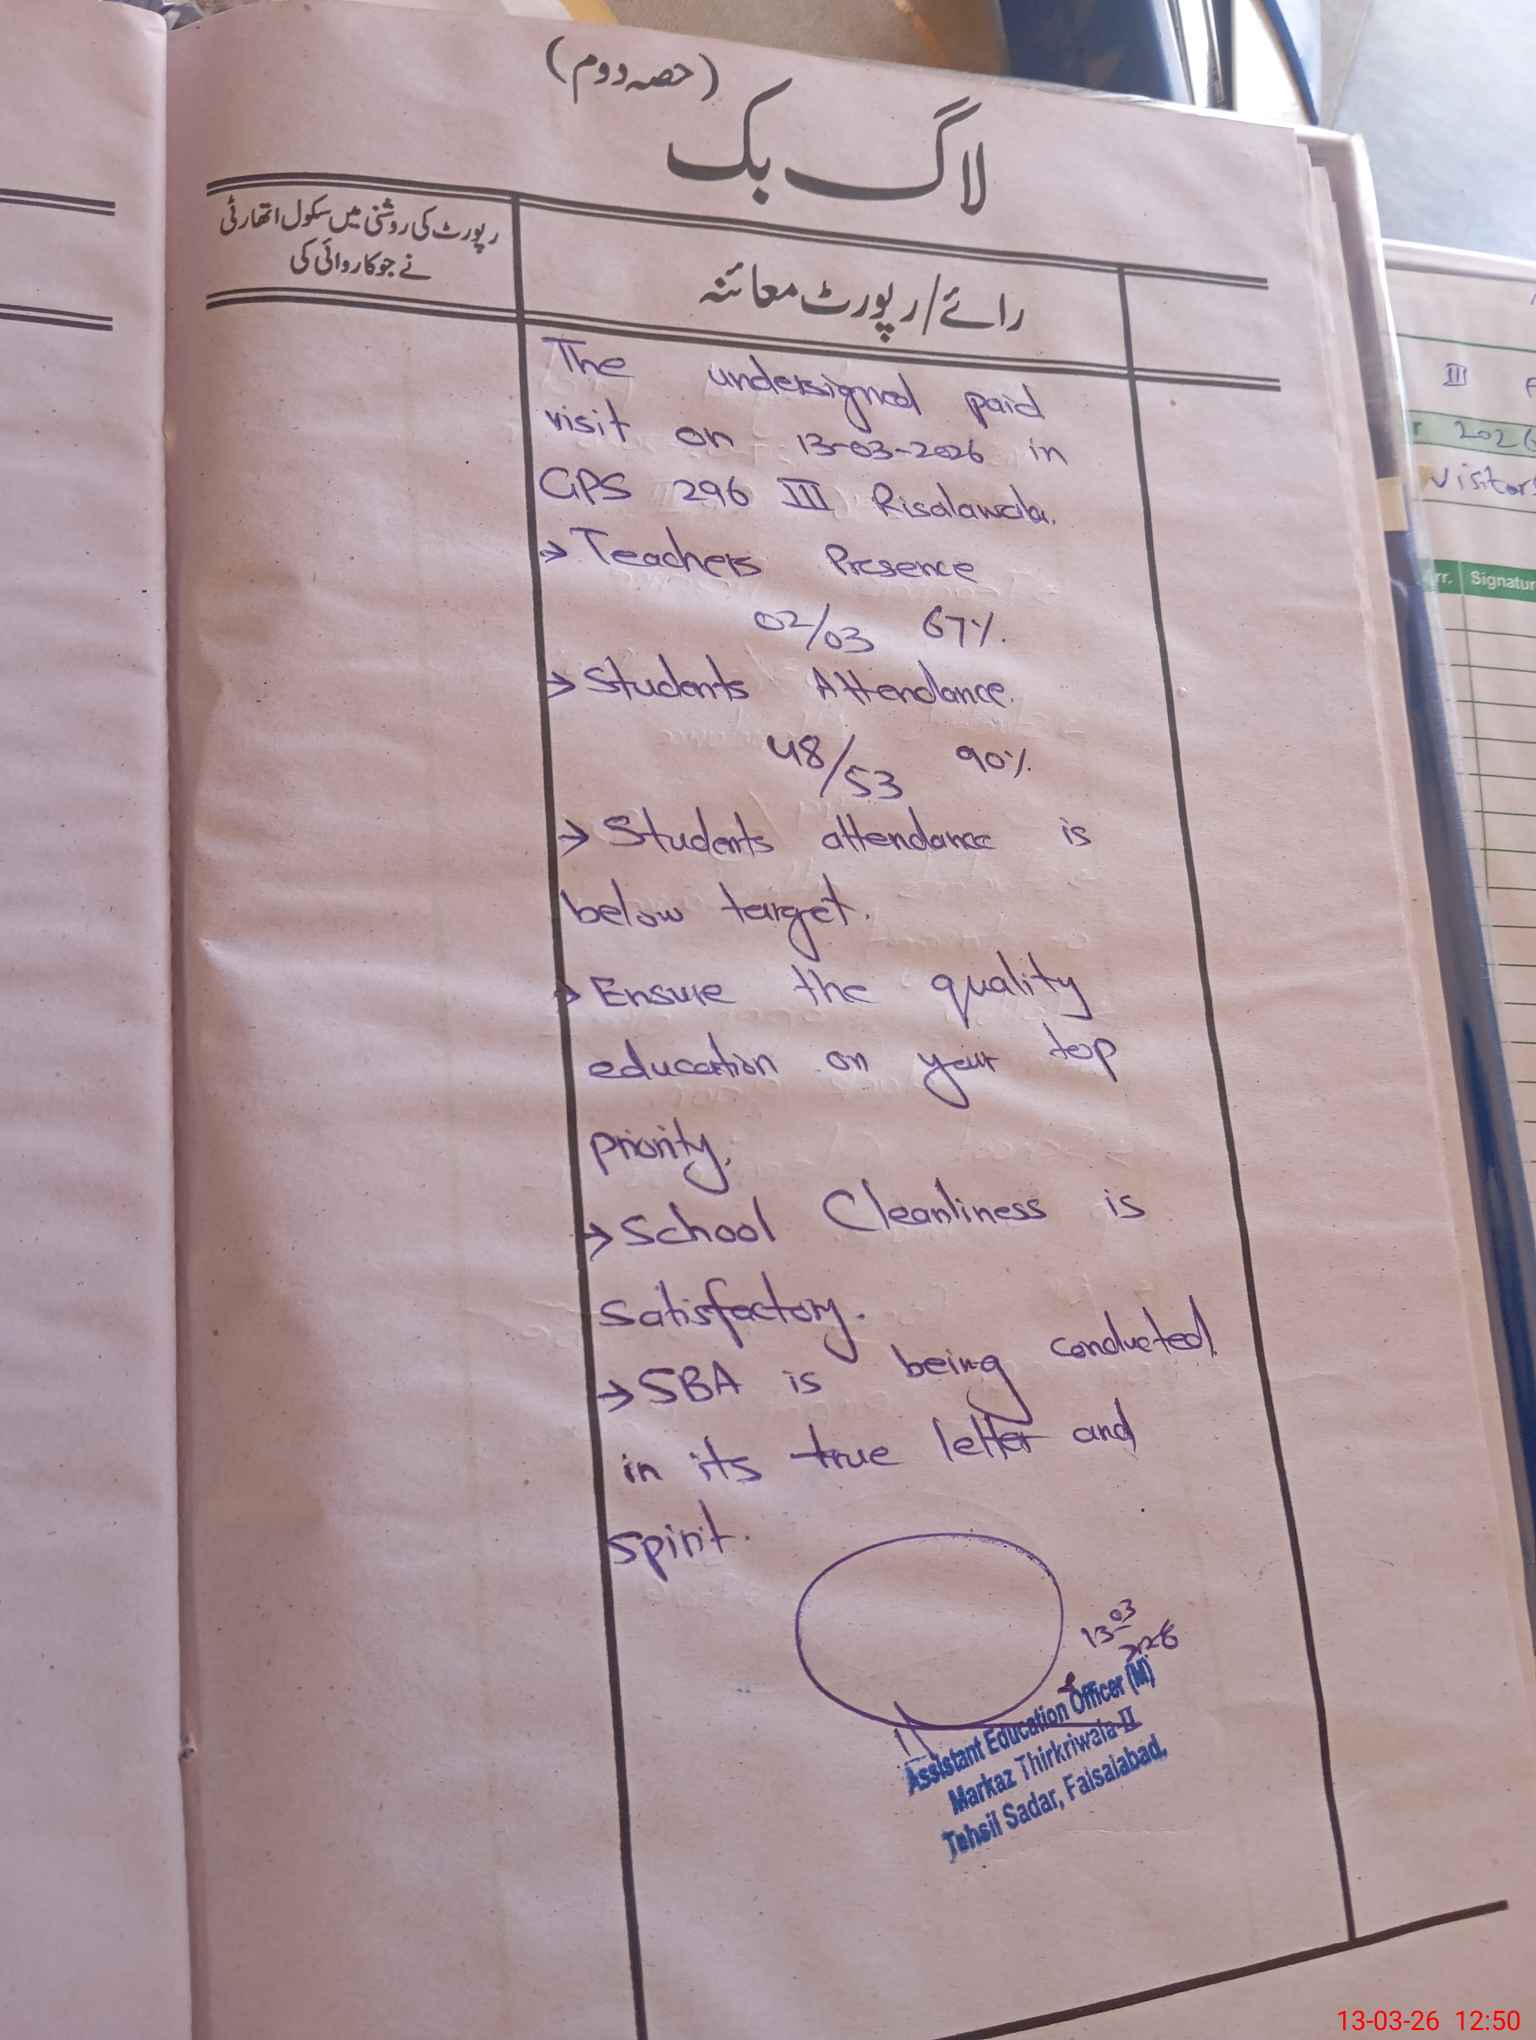 (حصہ دوم)
لاگ بک
رائے/رپورٹ معائنہ
رپورٹ کی روشنی میں سکول اتھارٹی
نے جو کاروائی کی
The undersigned paid
visit on 13-03-2026 in
GPS 296 III Risalawala.
→ Teachers Presence
02/03 67%.
→ Students Attendance.
48/53 90%.
→ Students attendance is
below target.
→ Ensure the quality
education on your top
priority.
→ School Cleanliness is
Satisfactory.
→ SBA is being conducted
in its true letter and
spirit.
13-03
2026
Assistant Education Officer (M)
Markaz Thirkriwala-II
Tehsil Sadar, Faisalabad.
III
202
visitor
rr. Signatur
13-03-26 12:50